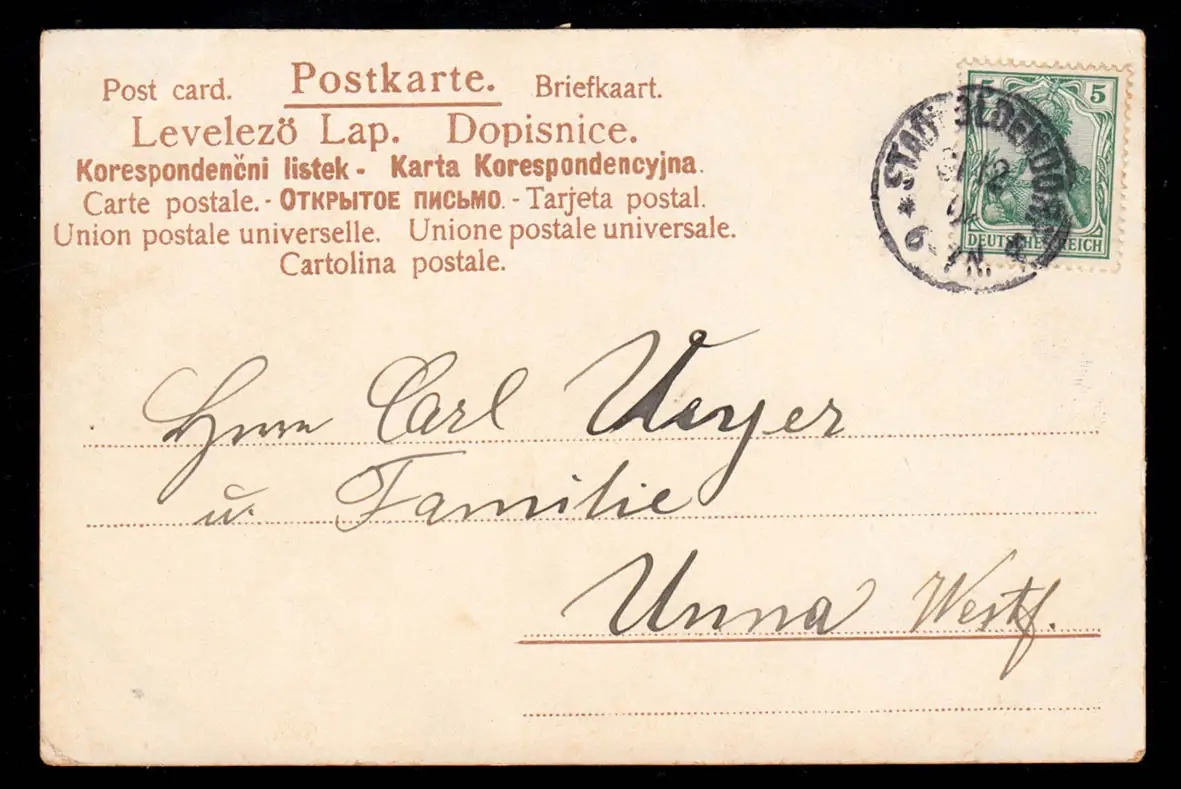 Post card. Postkarte. Briefkaart.
Levelezö Lap. Dopisnice.
Korespondenčni listek - Karta Korespondencyjna.
Carte postale. - Открытое письмо. - Tarjeta postal.
Union postale universelle. Unione postale universale.
Cartolina postale.
5 5
DEUTSCHES REICH
6-7N.
Herrn Carl Weyer
u. Familie
Unna Westf.